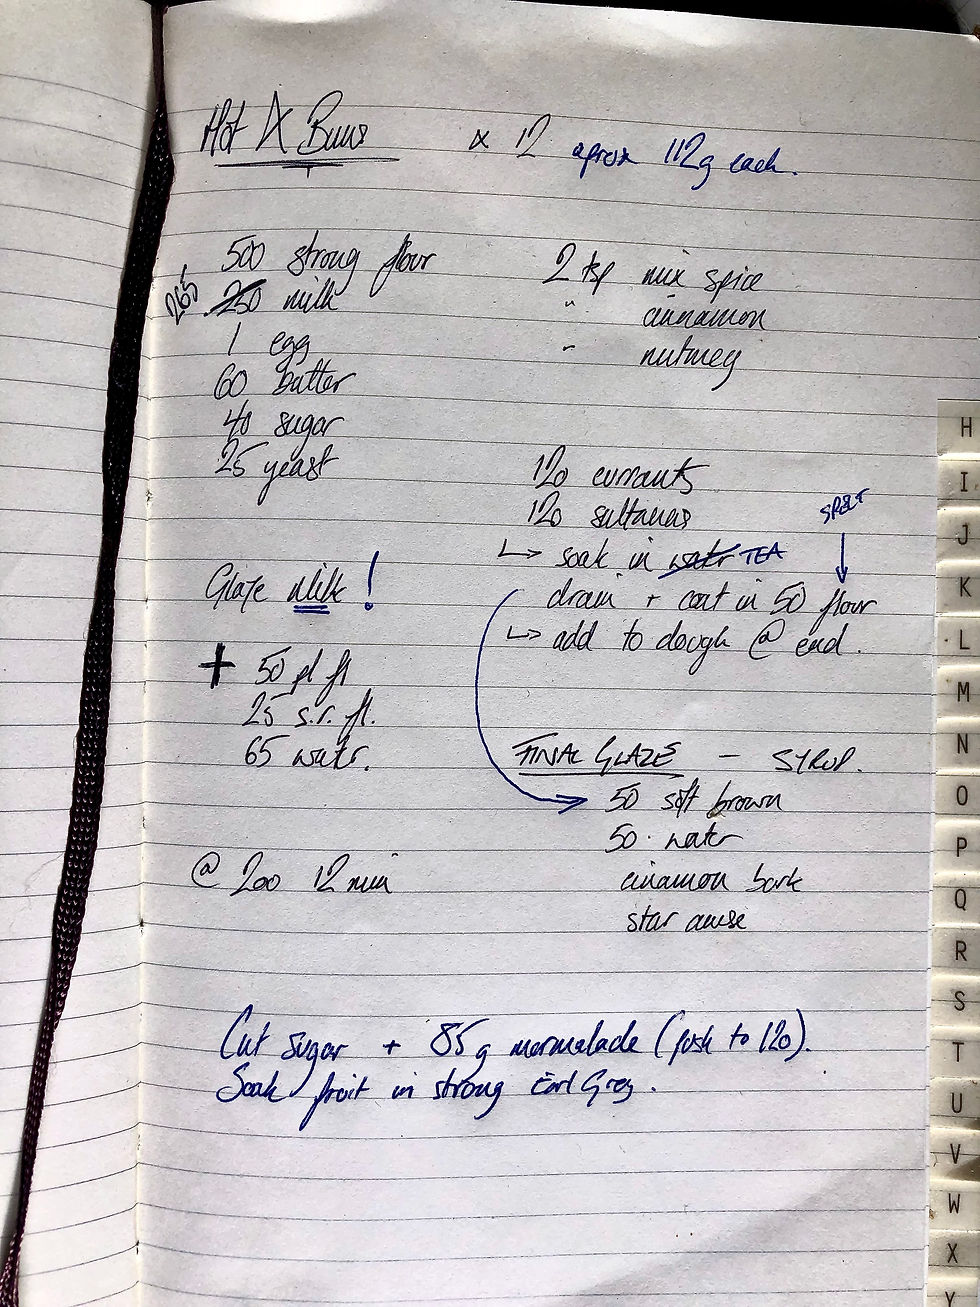 Hot X Buns x 12 aprox 112g each.
500 strong flour
265 250 milk
1 egg
60 butter
40 sugar
25 yeast
2 tsp mix spice
" cinnamon
" nutmeg
120 currants
120 sultanas
↳ soak in water TEA
SPELT
drain + coat in 50 flour
↳ add to dough @ end.
Glaze Milk!
+ 50 pl fl
25 s.r. fl.
65 water.
@ 200 12 min
FINAL GLAZE – SYRUP.
50 soft brown
50 . water
cinamon bark
star anise
Cut sugar + 85g marmalade (push to 120).
Soak fruit in strong Earl Grey.
H
I
J
K
L
M
N
O
P
Q
R
S
T
U
V
W
X
Y